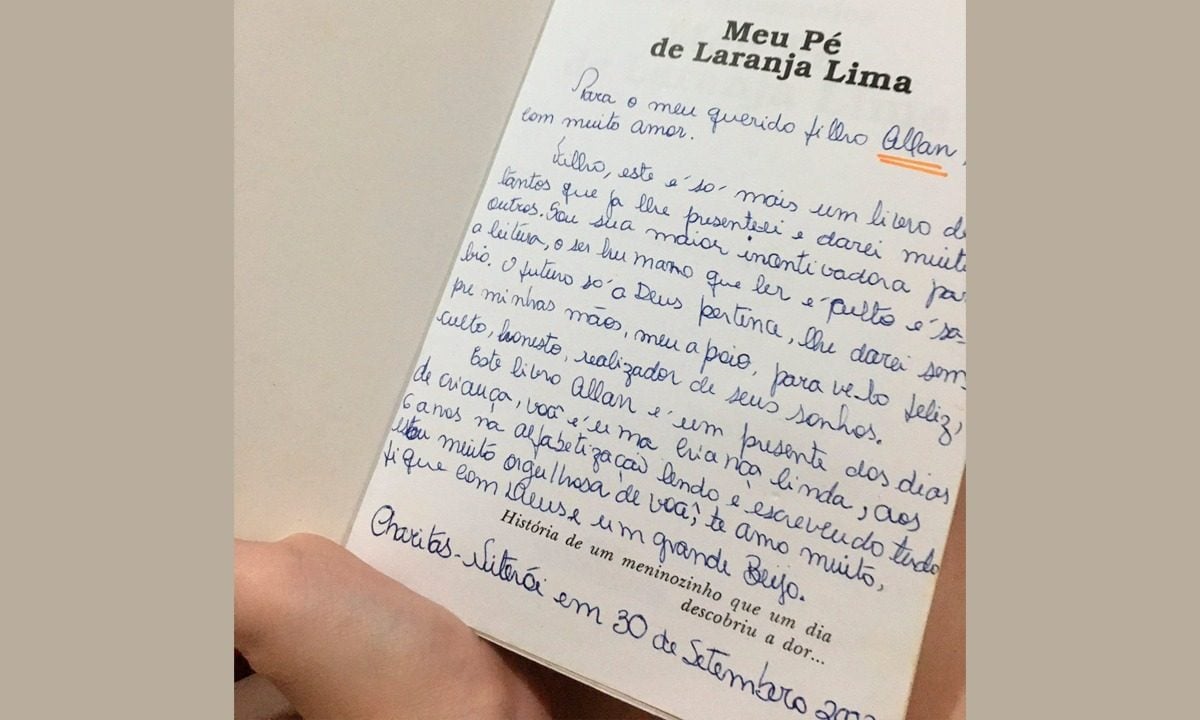 Meu Pé
de Laranja Lima
Para o meu querido filho Allan,
com muito amor.
Filho, este é só mais um livro d
tantos que ja lhe presenteei e darei muito
outros. Sou sua maior incentivadora pa
a leitura, o ser humano que ler é culto é sá-
bio. O futuro só a Deus pertence, lhe darei sem-
pre minhas mãos, meu apoio, para ve-lo feliz,
culto, honesto, realizador de seus sonhos.
Este livro Allan é um presente dos dias
de criança, você é uma criança linda, aos
6 anos na alfabetização lendo e escrevendo tudo
estou muito orgulhosa de você, te amo muito,
fique com Deus e um grande Beijo.
História de um meninozinho que um dia
descobriu a dor...
Charitas - Niterói em 30 de Setembro